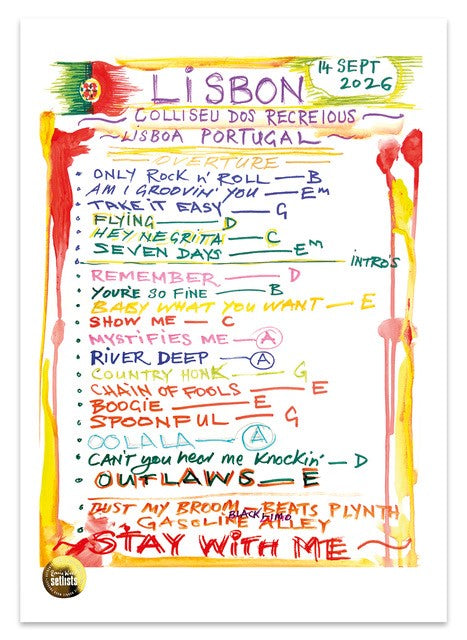 LiSBON
14 SEPT
2026
COLLISEU DOS RECREIOUS
LISBOA PORTUGAL
OVERTURE
ONLY ROCK n' ROLL — B
AM I GROOVIN' YOU — Em
TAKE iT EASY — G
FLYING — D
HEY NEGRITA — C
SEVEN DAYS — Em
INTRO'S
REMEMBER — D
YOU'RE SO FINE — B
BABY WHAT YOU WANT — E
SHOW ME — C
MYSTiFIES ME — A
RiVER DEEP — A
COUNTRY HONK — G
CHAiN OF FOOLS — E
BOOGiE — E
SPOONFUL — G
OOLALA — A
CAN'T you hear me KNOCKiN' — D
OUTFLAWS — E
DUST MY BROOM BEATS PLYNTH
BLACK LIMO
GASOLINE ALLEY
STAY WiTH ME
setlists